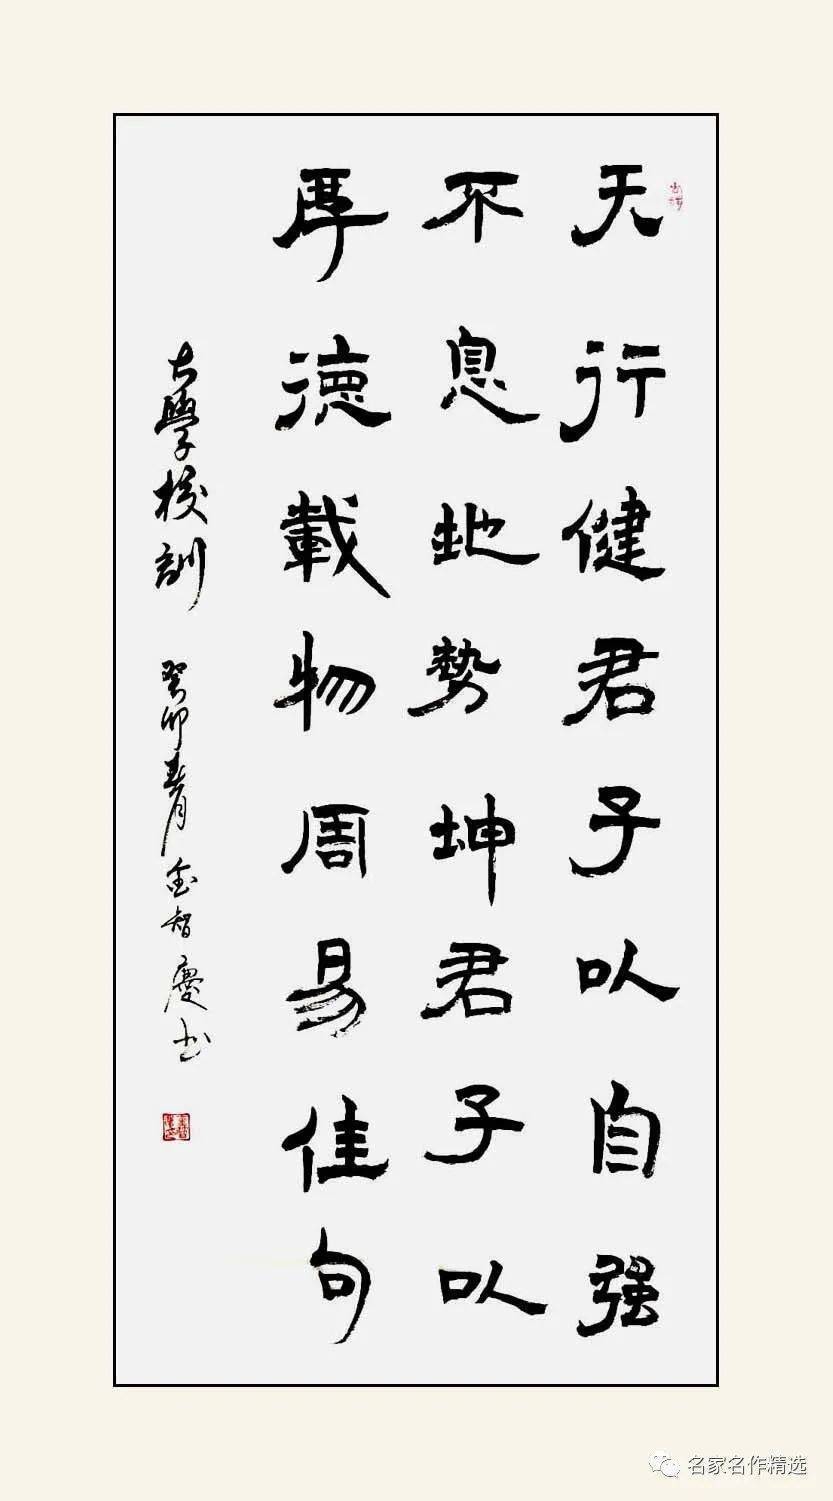 天行健君子以自强
不息地势坤君子以
厚德載物周易佳句
大學校訓 癸卯春月金智慶书
名家名作精选